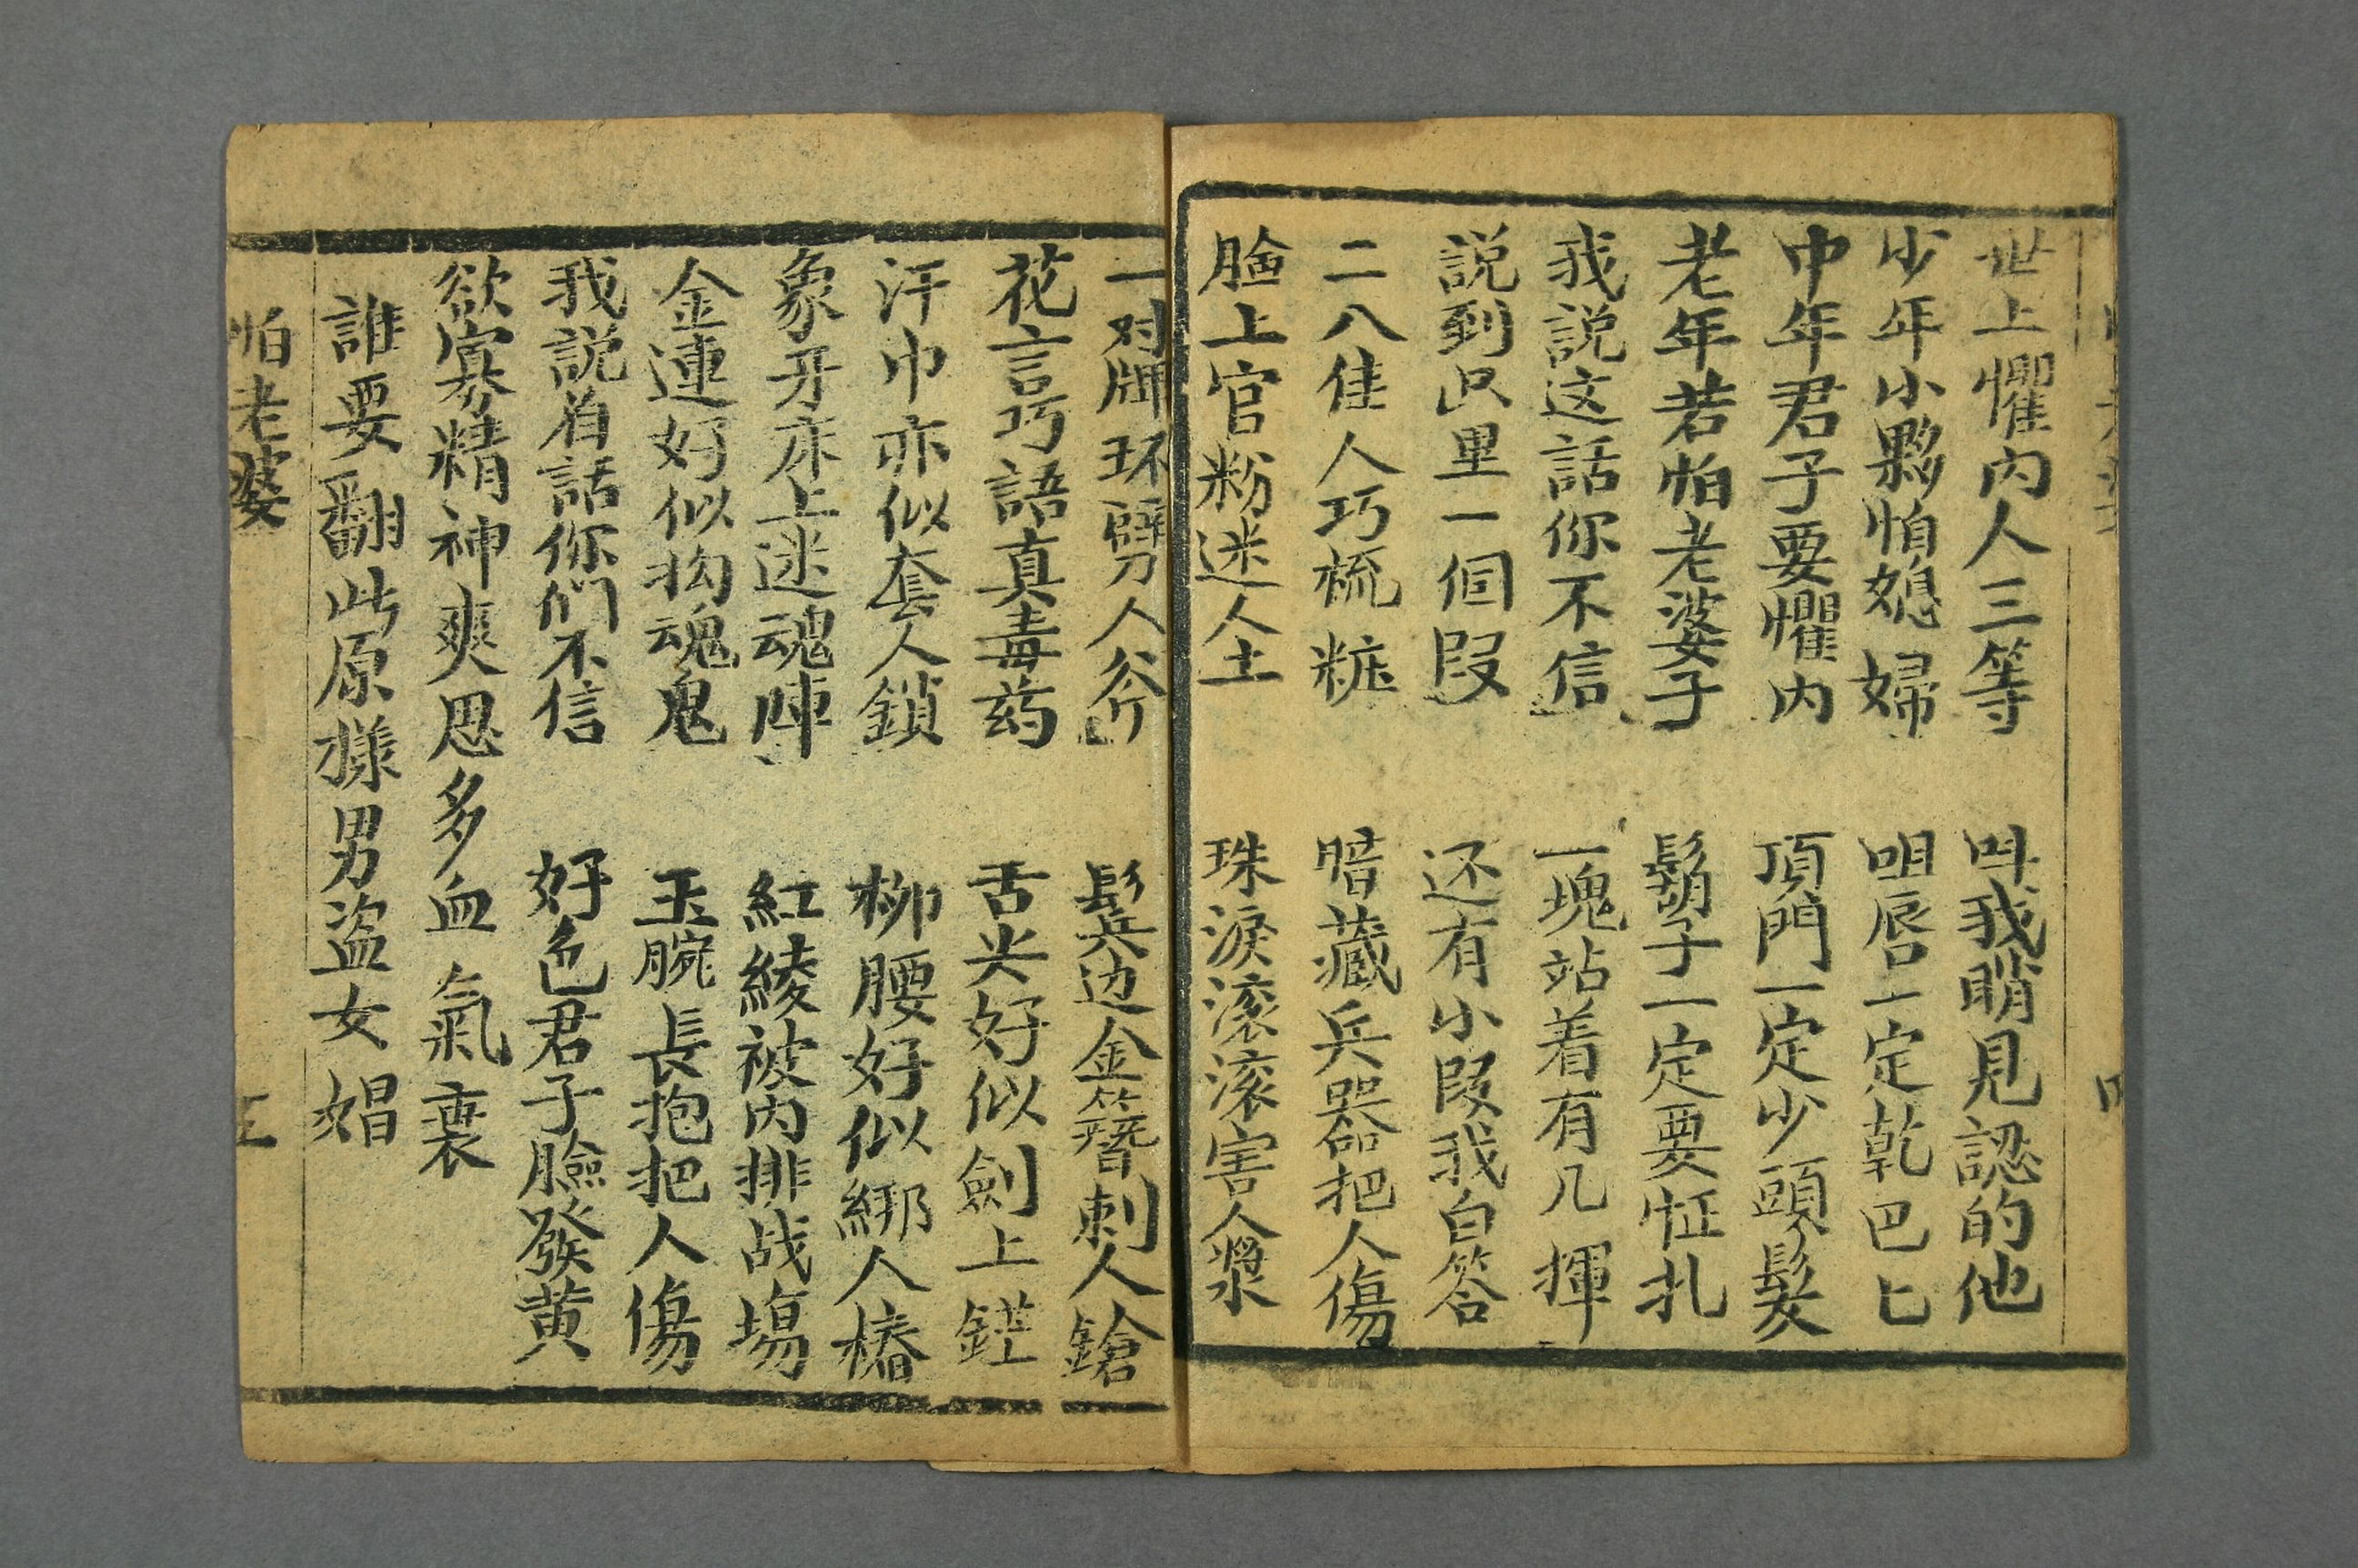 世上懼內人三等 呌我睄見認的他
少年小夥怕媳婦 咀唇一定乾巴匕
中年君子要懼内 頂門一定少頭髮
老年若怕老婆子 鬍子一定要怔扎
我説这話你不信 一塊站着有几揮
説到只里一個叚 还有小叚我白答
二八佳人巧梳粧 暗藏兵器把人傷
臉上官粉迷人土 珠淚滚滚害人漿
一对牌环劈人斧 鬂边金簪刺人鎗
花言巧語真毒药 舌尖好似劍上鋩
汗巾亦似套人鎖 柳腰好似綁人樁
象牙床上迷魂陣 紅綾被内排战塲
金連好似抅魂鬼 玉腕長抱把人傷
我説有話你們不信 好色君子臉發黄
欲寡精神爽思多血氣衰
誰要翻此原樣男盗女娼
怕老婆 五